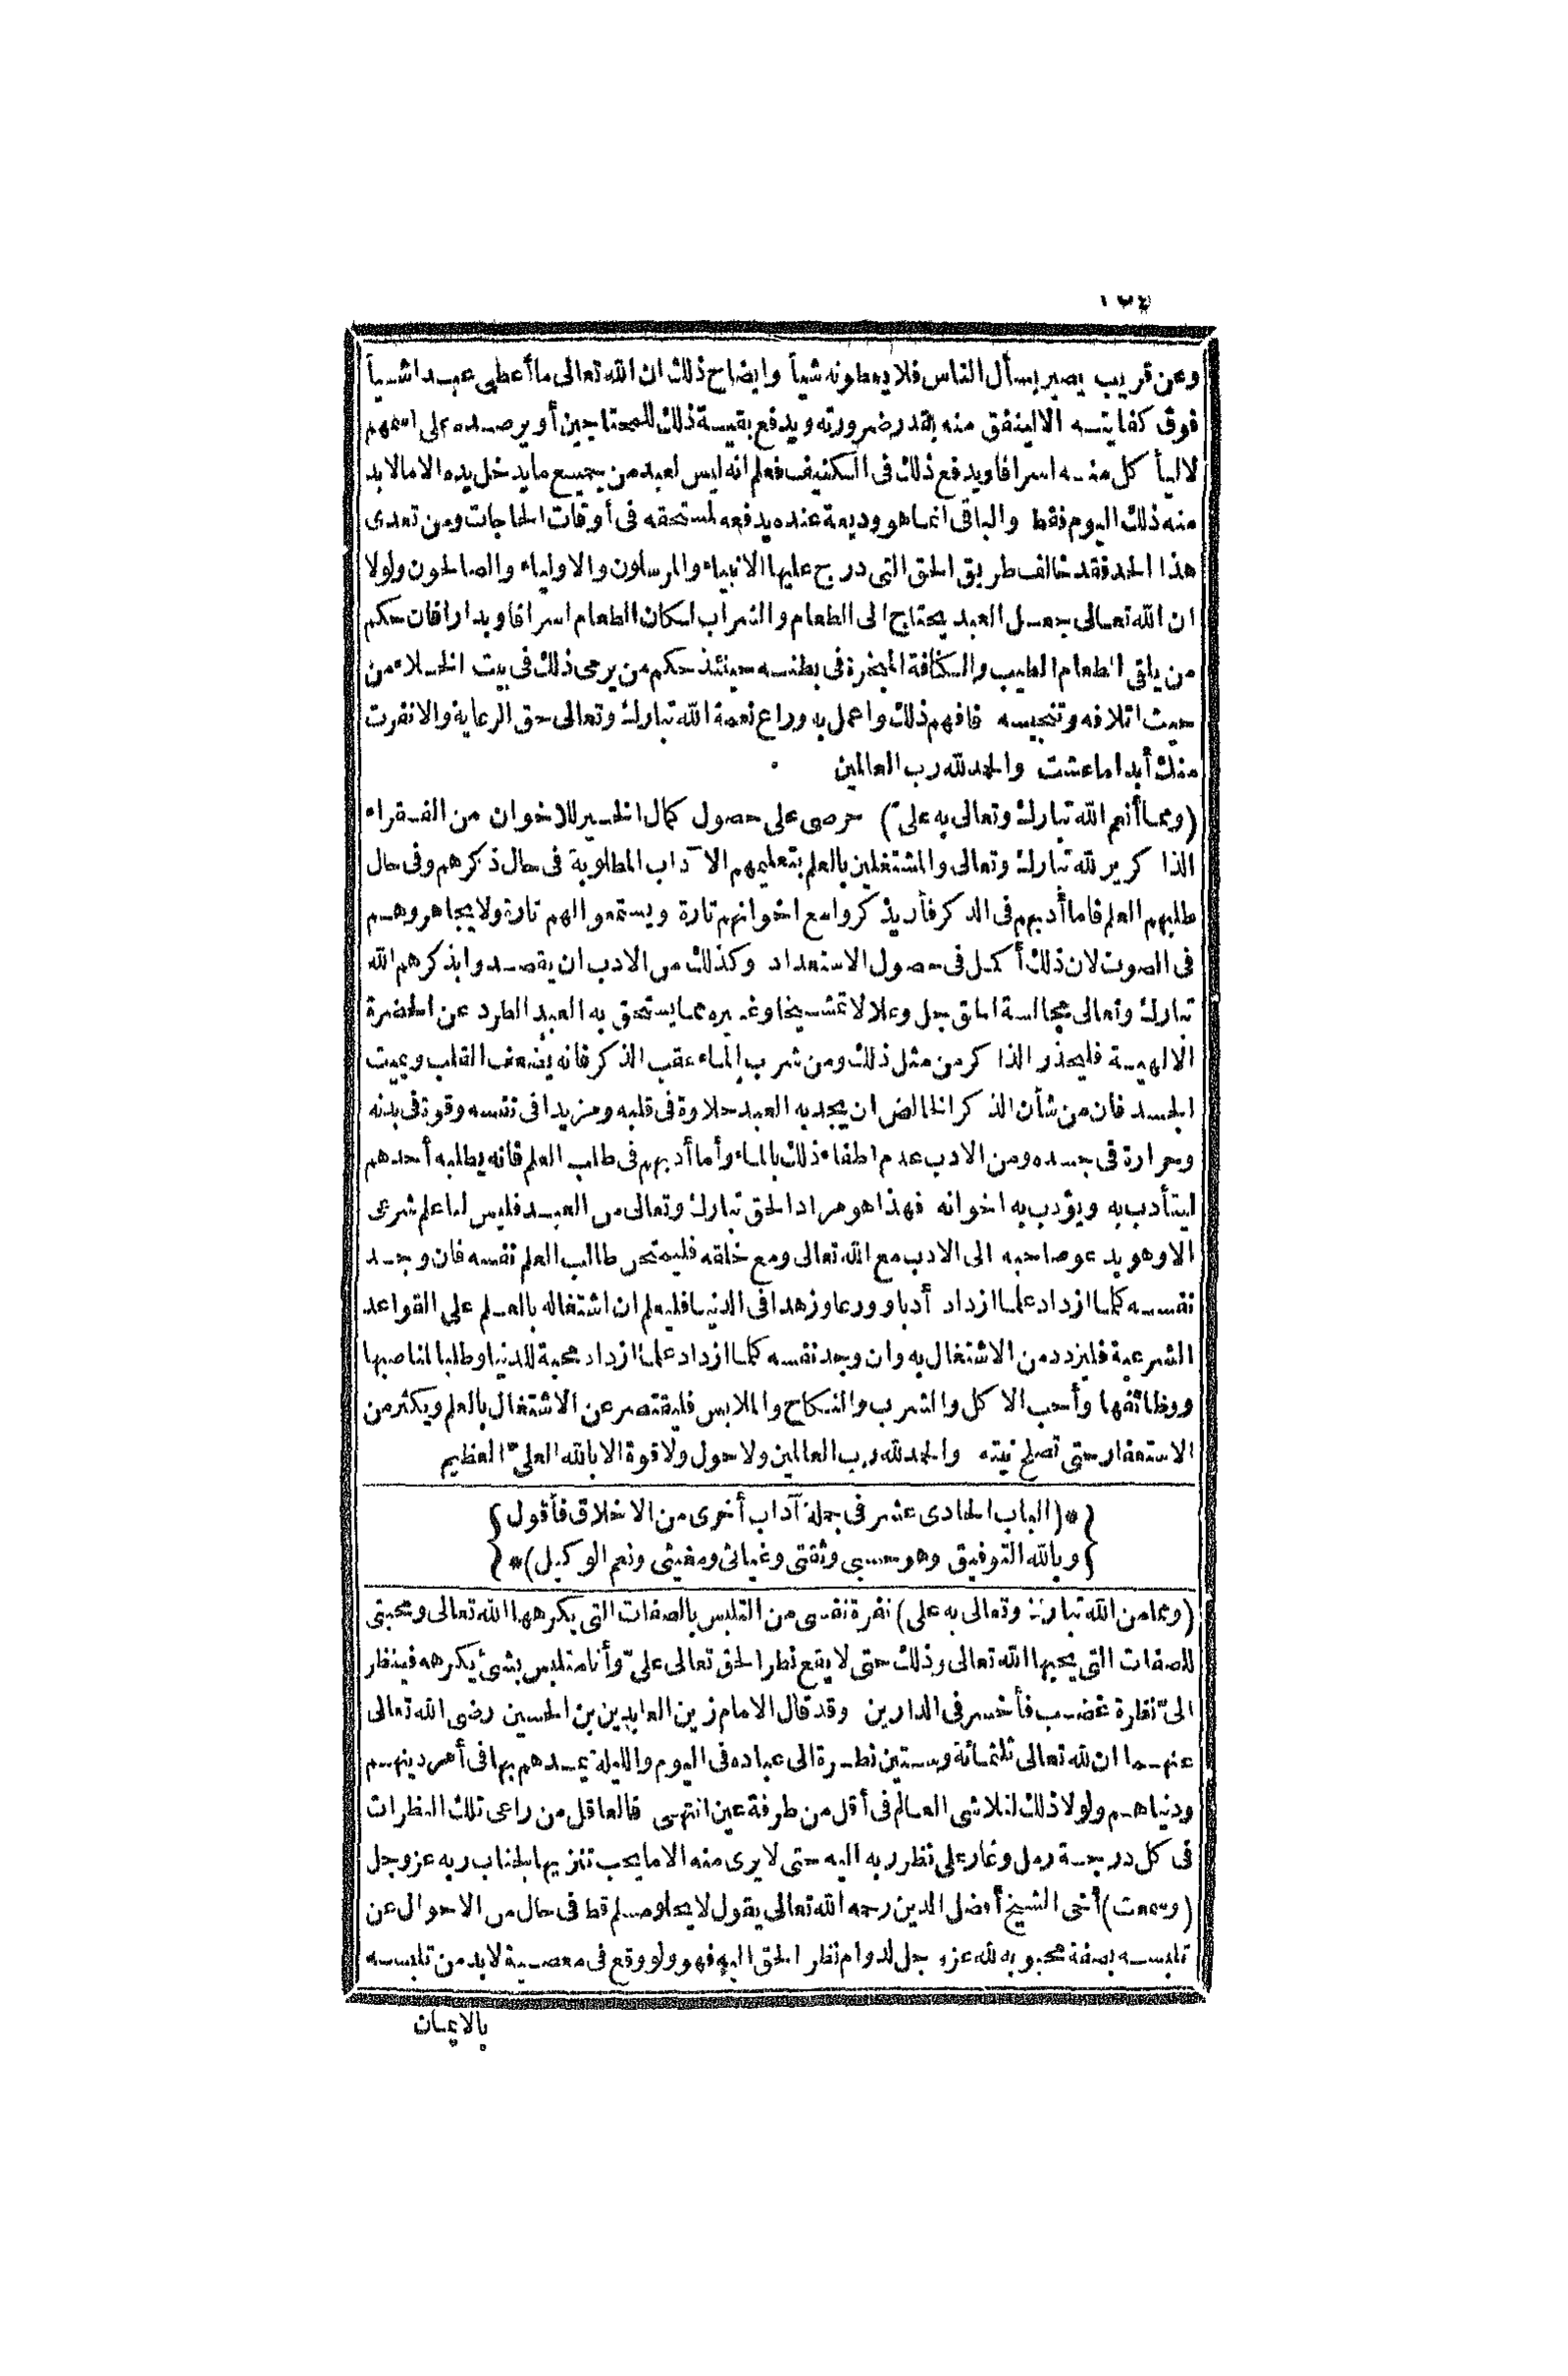 وعن قريب يصير يسأل الناس فلا يعطونه شيأ وايضاح ذلك ان الله تعالى ما أعطى عبدا شيأ
فوق كفايته الا لينفق منه بقدر ضرورته ويدفع بقية ذلك للمحتاجين أو يرصده على اسمهم
لا ليأكل منه اسرافا ويدفع ذلك فى الكنيف فعلم انه ليس لعبد من جميع ما يدخل يده الا ما لا بد
منه ذلك اليوم فقط والباقى انما هو وديعة عنده يدفعه لمستحقه فى أوقات الحاجات ومن تعدى
هذا الحد فقد خالف طريق الحق التى درج عليها الانبياء والمرسلون والاولياء والصالحون ولولا
ان الله تعالى جعل العبد يحتاج الى الطعام والشراب لكان الطعام اسرافا وبدارا فان حكم
من يلقى الطعام الطيب والكنافة المبخرة فى بطنه حينئذ حكم من يرمى ذلك فى بيت الخلاء من
حيث اتلافه وتنجيسه فافهم ذلك واعمل به وراع نعمة الله تبارك وتعالى حق الرعاية والا نفرت
منك أبدا ما عشت والحمد لله رب العالمين
(ومما أنعم الله تبارك وتعالى به علىّ) حرصى على حصول كمال الخير للاخوان من الفقراء
الذاكرير لله تبارك وتعالى والمشتغلين بالعلم بتعليمهم الآداب المطلوبة فى حال ذكرهم وفى حال
طلبهم العلم فاما أدبهم فى الذكر فأن يذكروا مع اخوانهم تارة ويستمعوا لهم تارة ولا يجاهروهم
فى الصوت لان ذلك أكمل فى حصول الاستعداد وكذلك من الادب ان يقصدوا بذكرهم الله
تبارك وتعالى مجالسة الحق جل وعلا لا تمشيخا وغيره مما يستحق به العبد الطرد عن الحضرة
الالهية فليحذر الذاكر من مثل ذلك ومن شرب الماء عقب الذكر فانه يضعف القلب ويميت
الجسد فان من شأن الذكر الخالص ان يجد به العبد حلاوة فى قلبه ومزيدا فى نفسه وقوة فى بدنه
وحرارة فى جسده ومن الادب عدم اطفاء ذلك بالماء وأما أدبهم فى طلب العلم فانه يطلبه أحدهم
ليتأدب به ويؤدب به اخوانه فهذا هو مراد الحق تبارك وتعالى من العبد فليس لنا علم شرعى
الا وهو يدعو صاحبه الى الادب مع الله تعالى ومع خلقه فليمتحن طالب العلم نفسه فان وجد
نفسه كلما ازداد علما ازداد أدبا وورعا وزهدا فى الدنيا فليعلم ان اشتغاله بالعلم على القواعد
الشرعية فليزدد من الاشتغال به وان وجد نفسه كلما ازداد علما ازداد محبة للدنيا وطلبا لمناصبها
ووظائفها وأحب الاكل والشرب والنكاح والملابس فليقتصر عن الاشتغال بالعلم ويكثر من
الاستغفار حتى تصلح نيته والحمد لله رب العالمين ولا حول ولا قوة الا بالله العلىّ العظيم
{*(الباب الحادى عشر فى جملة آداب أخرى من الاخلاق فأقول}
{وبالله التوفيق وهو حسبى وثقتى وغياثى ومغيثى ونعم الوكيل)*}
(ومما من الله تبارك وتعالى به على) نفرة نفسى من التلبس بالصفات التى يكرهها الله تعالى ومحبتى
للصفات التى يحبها الله تعالى وذلك حتى لا يقع نظر الحق تعالى علىّ وأنا متلبس بشئ يكرهه فينظر
الىّ نظرة غضب فأخسر فى الدارين وقد قال الامام زين العابدين بن الحسين رضى الله تعالى
عنهما ان لله تعالى ثلثمائة وستين نظرة الى عباده فى اليوم والليلة يمدهم بها فى أمر دينهم
ودنياهم ولولا ذلك لتلاشى العالم فى أقل من طرفة عين انتهى فالعاقل من راعى تلك النظرات
فى كل درجة رمل وغار على نظر ربه اليه حتى لا يرى منه الا ما يحب تنزيها لجناب ربه عز وجل
(وسمعت) أخى الشيخ أفضل الدين رحمه الله تعالى يقول لا يخلو مسلم قط فى حال من الاحوال عن
تلبسه بصفة محبوبة لله عز وجل لدوام نظر الحق اليه فهو ولو وقع فى معصية لا بد من تلبسه
بالايمان